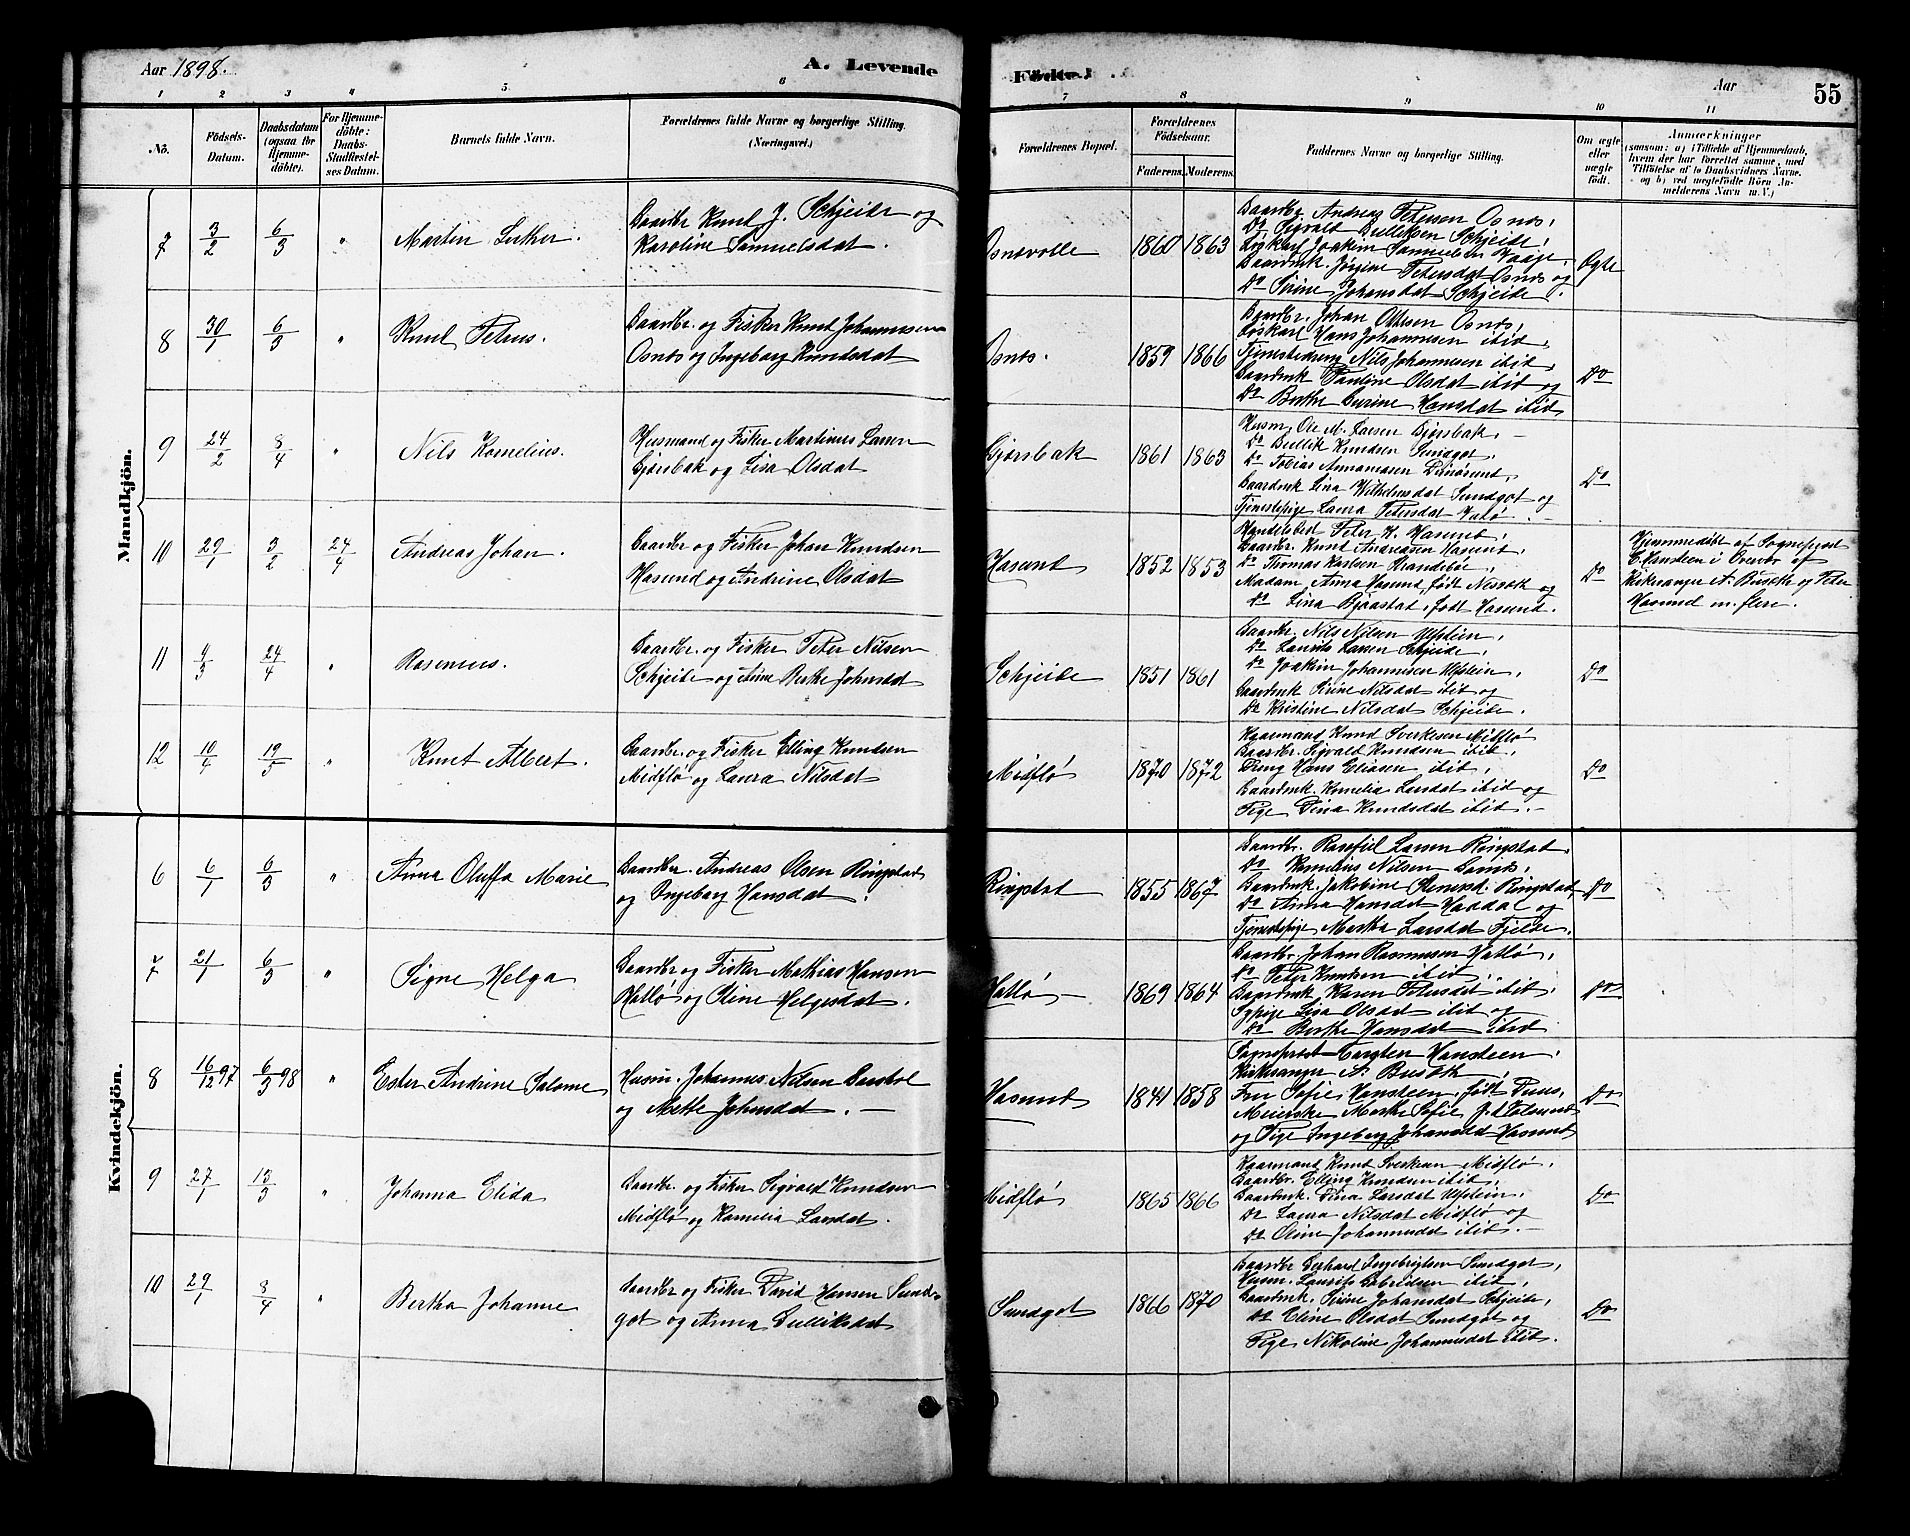 Aar 1898.
A. Levende
Fødte.
Aar
55
1 2 3 4 5 6 7 8 9 10 11
No.
Fødsels-Datum.
Daabsdatum (ogsaa for Hjemmedøbte).
For Hjemmedøbte: Daabs-Stadfæstelses Datum.
Barnets fulde Navn.
Forældrenes fulde Navne og borgerlige Stilling. (Næringsvei.)
Forældrenes Bopæl.
Forældrenes Fødselsaar.
Faderens. Moderens.
Faddernes Navne og borgerlige Stilling.
Om ægte eller uægte født.
Anmærkninger
(saasom: a) i Tilfælde af Hjemmedaab, hvem der har forrettet samme, med Tilføielse af to Daabsvidners Navne. og b) ved uægtefødte Børn Anmelderens Navn m. V.)
Mandkjøn.
7 3/2 6/3 " Martin Luther.
Gaardbr Knut J. Schjeide og
Karoline Samuelsdat.
Osnesvolle 1860 1863
Gaardbr. Andreas Petersen Osnes,
Do Sigvald Gulliksen Schjeide,
Løskarl Joakim Samuelsen Vaage.
Gaardmk. Jørgine Petersdat Osnes og
Do Sirine Johansdat Schjeide.
Ægte
8 30/1 6/3 " Knut Petrus.
Gaardbr. og Fisker Knut Johannesen
Osnes og Ingeborg Knudsdat
Osnes. 1859 1866
Gaardbr. Johan Ottesen Osnes,
Løskarl Hans Johannesen ibid,
Tjenestedreng Nils Johannesen ibid,
Gaardmk Pauline Olsdat ibid og
Do Berthe Gurine Hansdat ibid
Do
9 24/2 8/4 " Nils Kornelius.
Husmand og Fisker Martinus Larsen
Gjørsbak og Lisa Olsdat
Gjørsbak 1861 1863
Husm. Ole M. Larsen Gjørsbak,
Do Gullik Knudsen Sundgot,
Do Tobias Annanissen Dimøsund,
Gaardmk Lina Wilhelmsdat Sundgot og
Tjenestepige Laura Petersdat Vatø.
Do
10 29/1 3/2 24/4 Andreas Johan.
Gaardbr og Fisker Johan Knudsen
Hasund og Andrine Olsdat
Hasund 1852 1853
Handelsbest Peter K. Hasund,
Gaardbr. Knud Andreasen Hasund,
Do Thomas Karlsen Strandebøe,
Madam Anna Hasund, født Nessøth og
Do Lina Bjaastad, født Hasund.
Do
Hjemmedøbt af Sognepræst
C. Hansteen i Overvær af
Kirkesanger A. Busæth og Peter
Hasund m. flere.
11 4/3 24/4 " Rasmus.
Gaardbr. og Fisker Peter Nilsen
Schjeide og Anne Berthe Johnsdat
Schjeide 1851 1861
Gaardbr. Nils Nilsen Ulstein,
Do Laurits Larsen Schjeide,
Do Joakim Johannesen Ulstein,
Gaardmk Sirine Nilsdat ibid og
Do Kristine Nilsdat Schjeide.
Do
12 10/4 19/5 " Knut Albert.
Gaardbr. og Fisker Elling Knudsen
Midflø og Laura Nilsdat
Midflø 1870 1872
Kaarmand Knud Sverkesen Midflø
Gaardbr. Sigvald Knudsen ibid,
Dreng Hans Eliasen ibid,
Gaardmk. Kornelia Larsdat ibid og
Pige Dina Knudsdat ibid.
Do
Kvindekjøn.
6 6/1 6/3 " Anna Oluffa Marie
Gaardbr. Andreas Olsen Ringstad
og Ingeborg Hansdat.
Ringstad 1855 1867
Gaardbr. Rasefiel Larsen Ringstad,
Do Kornelius Nilsen
Gaardmk. Jakobine Ringstad,
Do Anna Hansdat Haddal og
Tjenestepige Marthe Larsdat Fjelde.
Do
7 21/1 6/3 " Signe Helga
Gaardbr og Fisker Mathias Hansen
Hatlø og Stine Helgesdat.
Hatlø 1869 1864
Gaardbr. Johan Rasmussen Hatlø,
Do Peter Knudsen ibid,
Gaardmk Karen Petersdat ibid,
Pige Lisa Olsdat ibid og
Do Berthe Hansdat ibid
Do
8 16/12 97 6/3 98 " Ester Andrine Salome
Husm. Johannes Nilsen
og Mette Johnsdat.
Hasund 1844 1858
Sognepræst Carsten Hansteen,
Kirkesanger A. Busæth,
Fru Sofie Hansteen, født Duus,
Meierske Marthe Sofie
og Pige Ingeborg Johansdat Hasund
Do
9 27/1 13/3 " Johanna Elida
Gaardbr. og Fisker Sigvald Knudsen
Midflø og Kornelia Larsdat.
Midflø 1865 1866
Kaarmand Knud Sverkesen Midflø,
Gaardbr. Elling Knudsen ibid,
Gaardmk. Dina Larsdat Ulstein,
Do Laura Nilsdat Midflø og
Do Oline Johannesdat ibid.
Do
10 29/1 8/4 " Bertha Johanne
Gaardbr og Fisker David Hansen Sund-
got og Anna Gulliksdat
Sundgot 1866 1870
Gaardbr Gerhard Ingebrigtsen Sundgot,
Husm. Laurits Gabrielsen ibid,
Gaardmk. Sirine Johansdat Schjeide,
Do Eline Olsdat Sundgot og
Pige Nikoline Johannesdat ibid.
Do